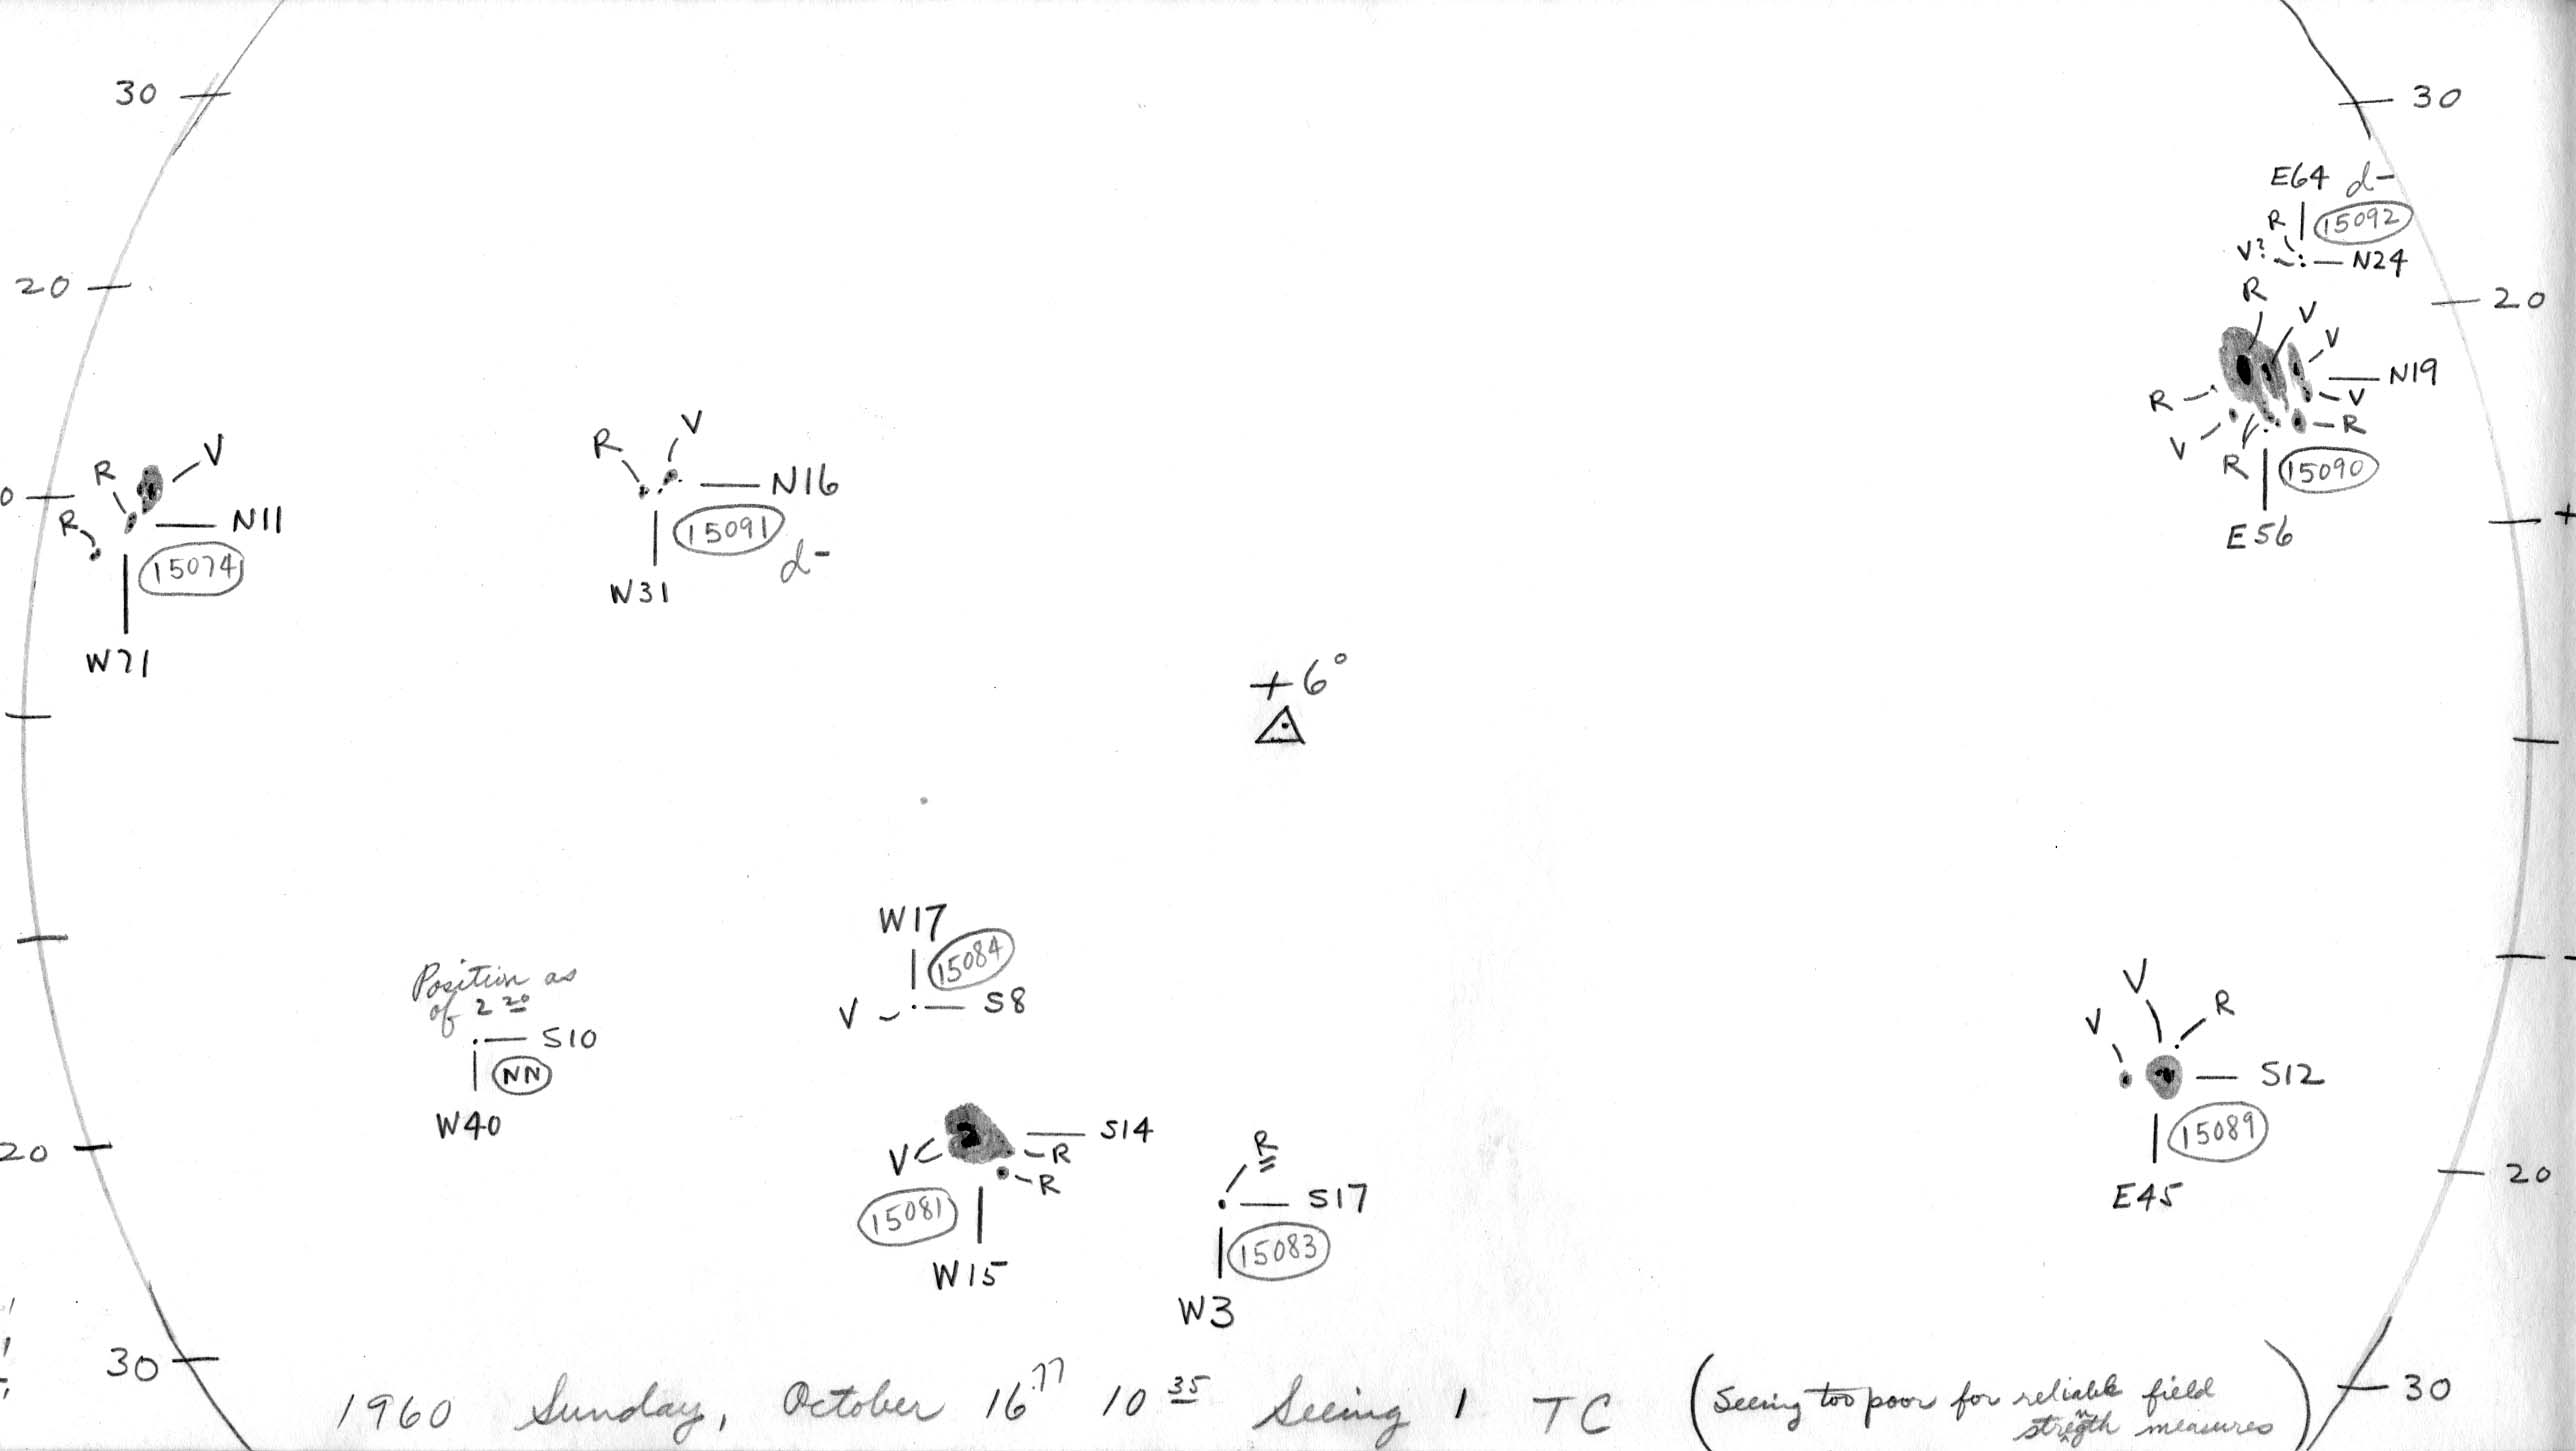 30
30
E64 d-
R
15092
V?
N24
20
R
20
V
V
N19
R
V
R
V
R
15090
E56
V
R
R
N11
15074
W71
V
R
N16
15091
d-
W31
+
+6°
W17
15084
V
S8
Position as
of 2 20
S10
NN
W40
V
R
V
S12
15089
E45
20
S14
V
R
R
15081
W15
R
S17
15083
W3
20
30
30
1960 Sunday, October 16.77 10 35 Seeing 1 TC (Seeing too poor for reliable field
strength measures)